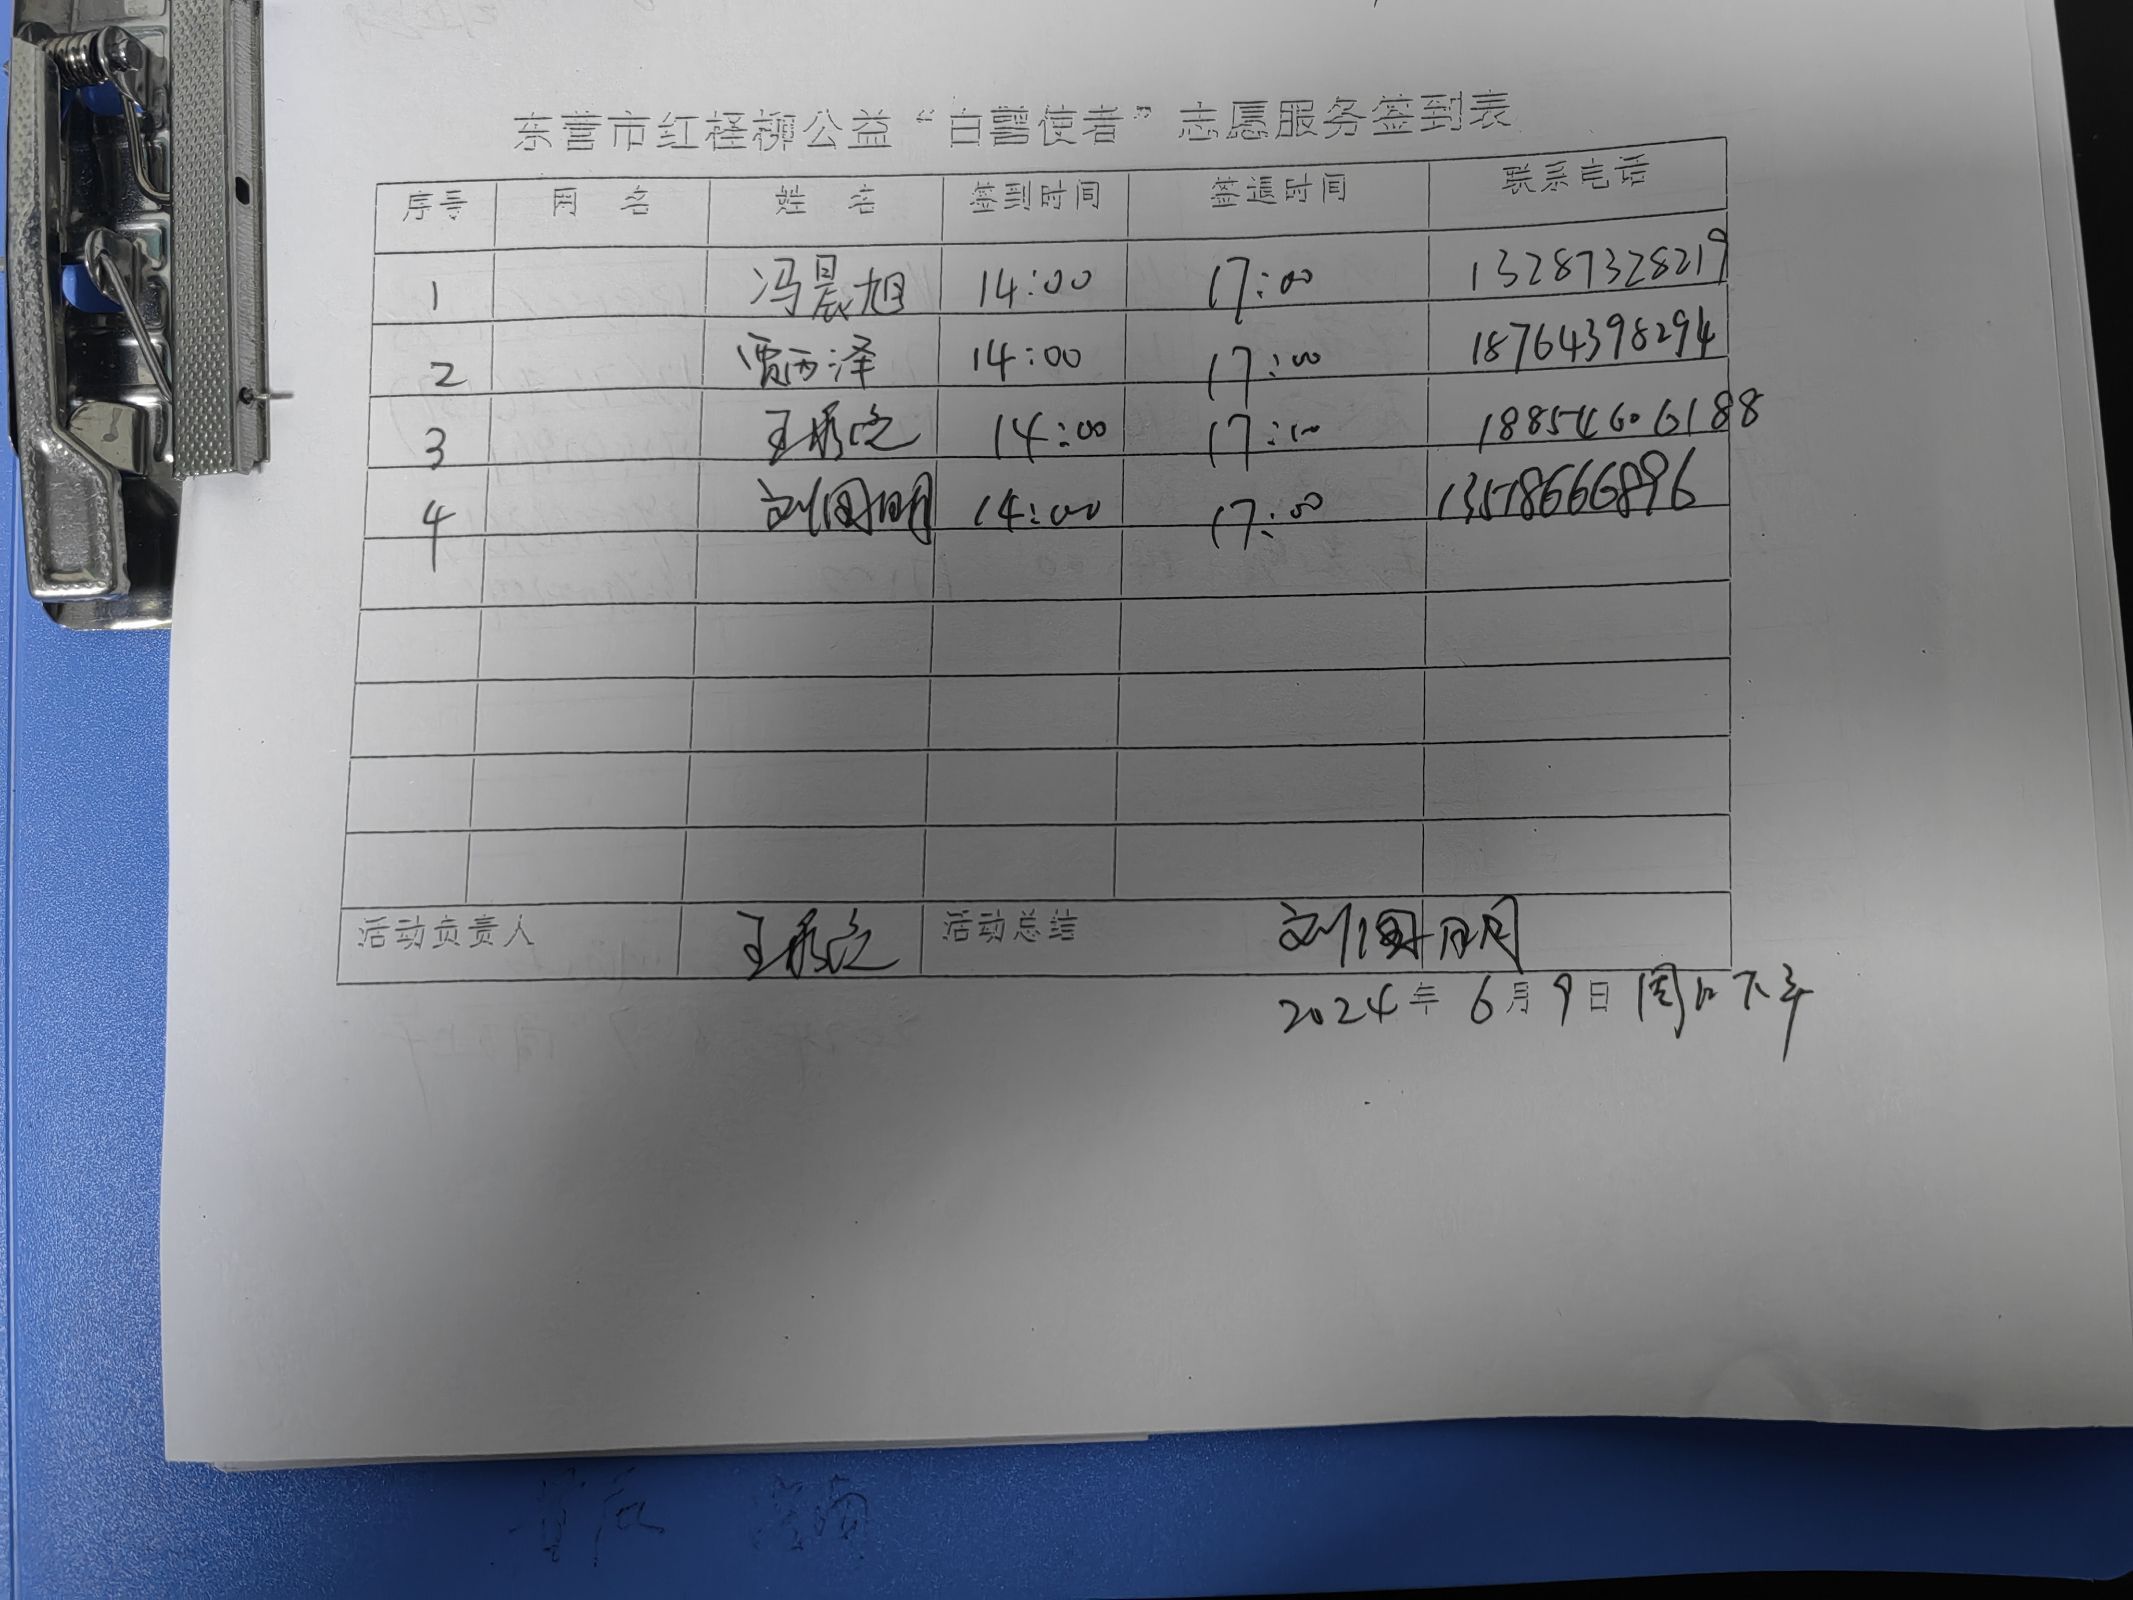 东营市红柽柳公益“白鹭使者”志愿服务签到表
序号 网 名 姓 名 签到时间 签退时间 联系电话
1 冯晨旭 14:00 17:00 13287328219
2 贾西泽 14:00 17:00 18764398294
3 14:00 17:00 18854606188
4 刘国明 14:00 17:00 13578666896
活动负责人 活动总结 刘国明
2024年6月9日 周日下午